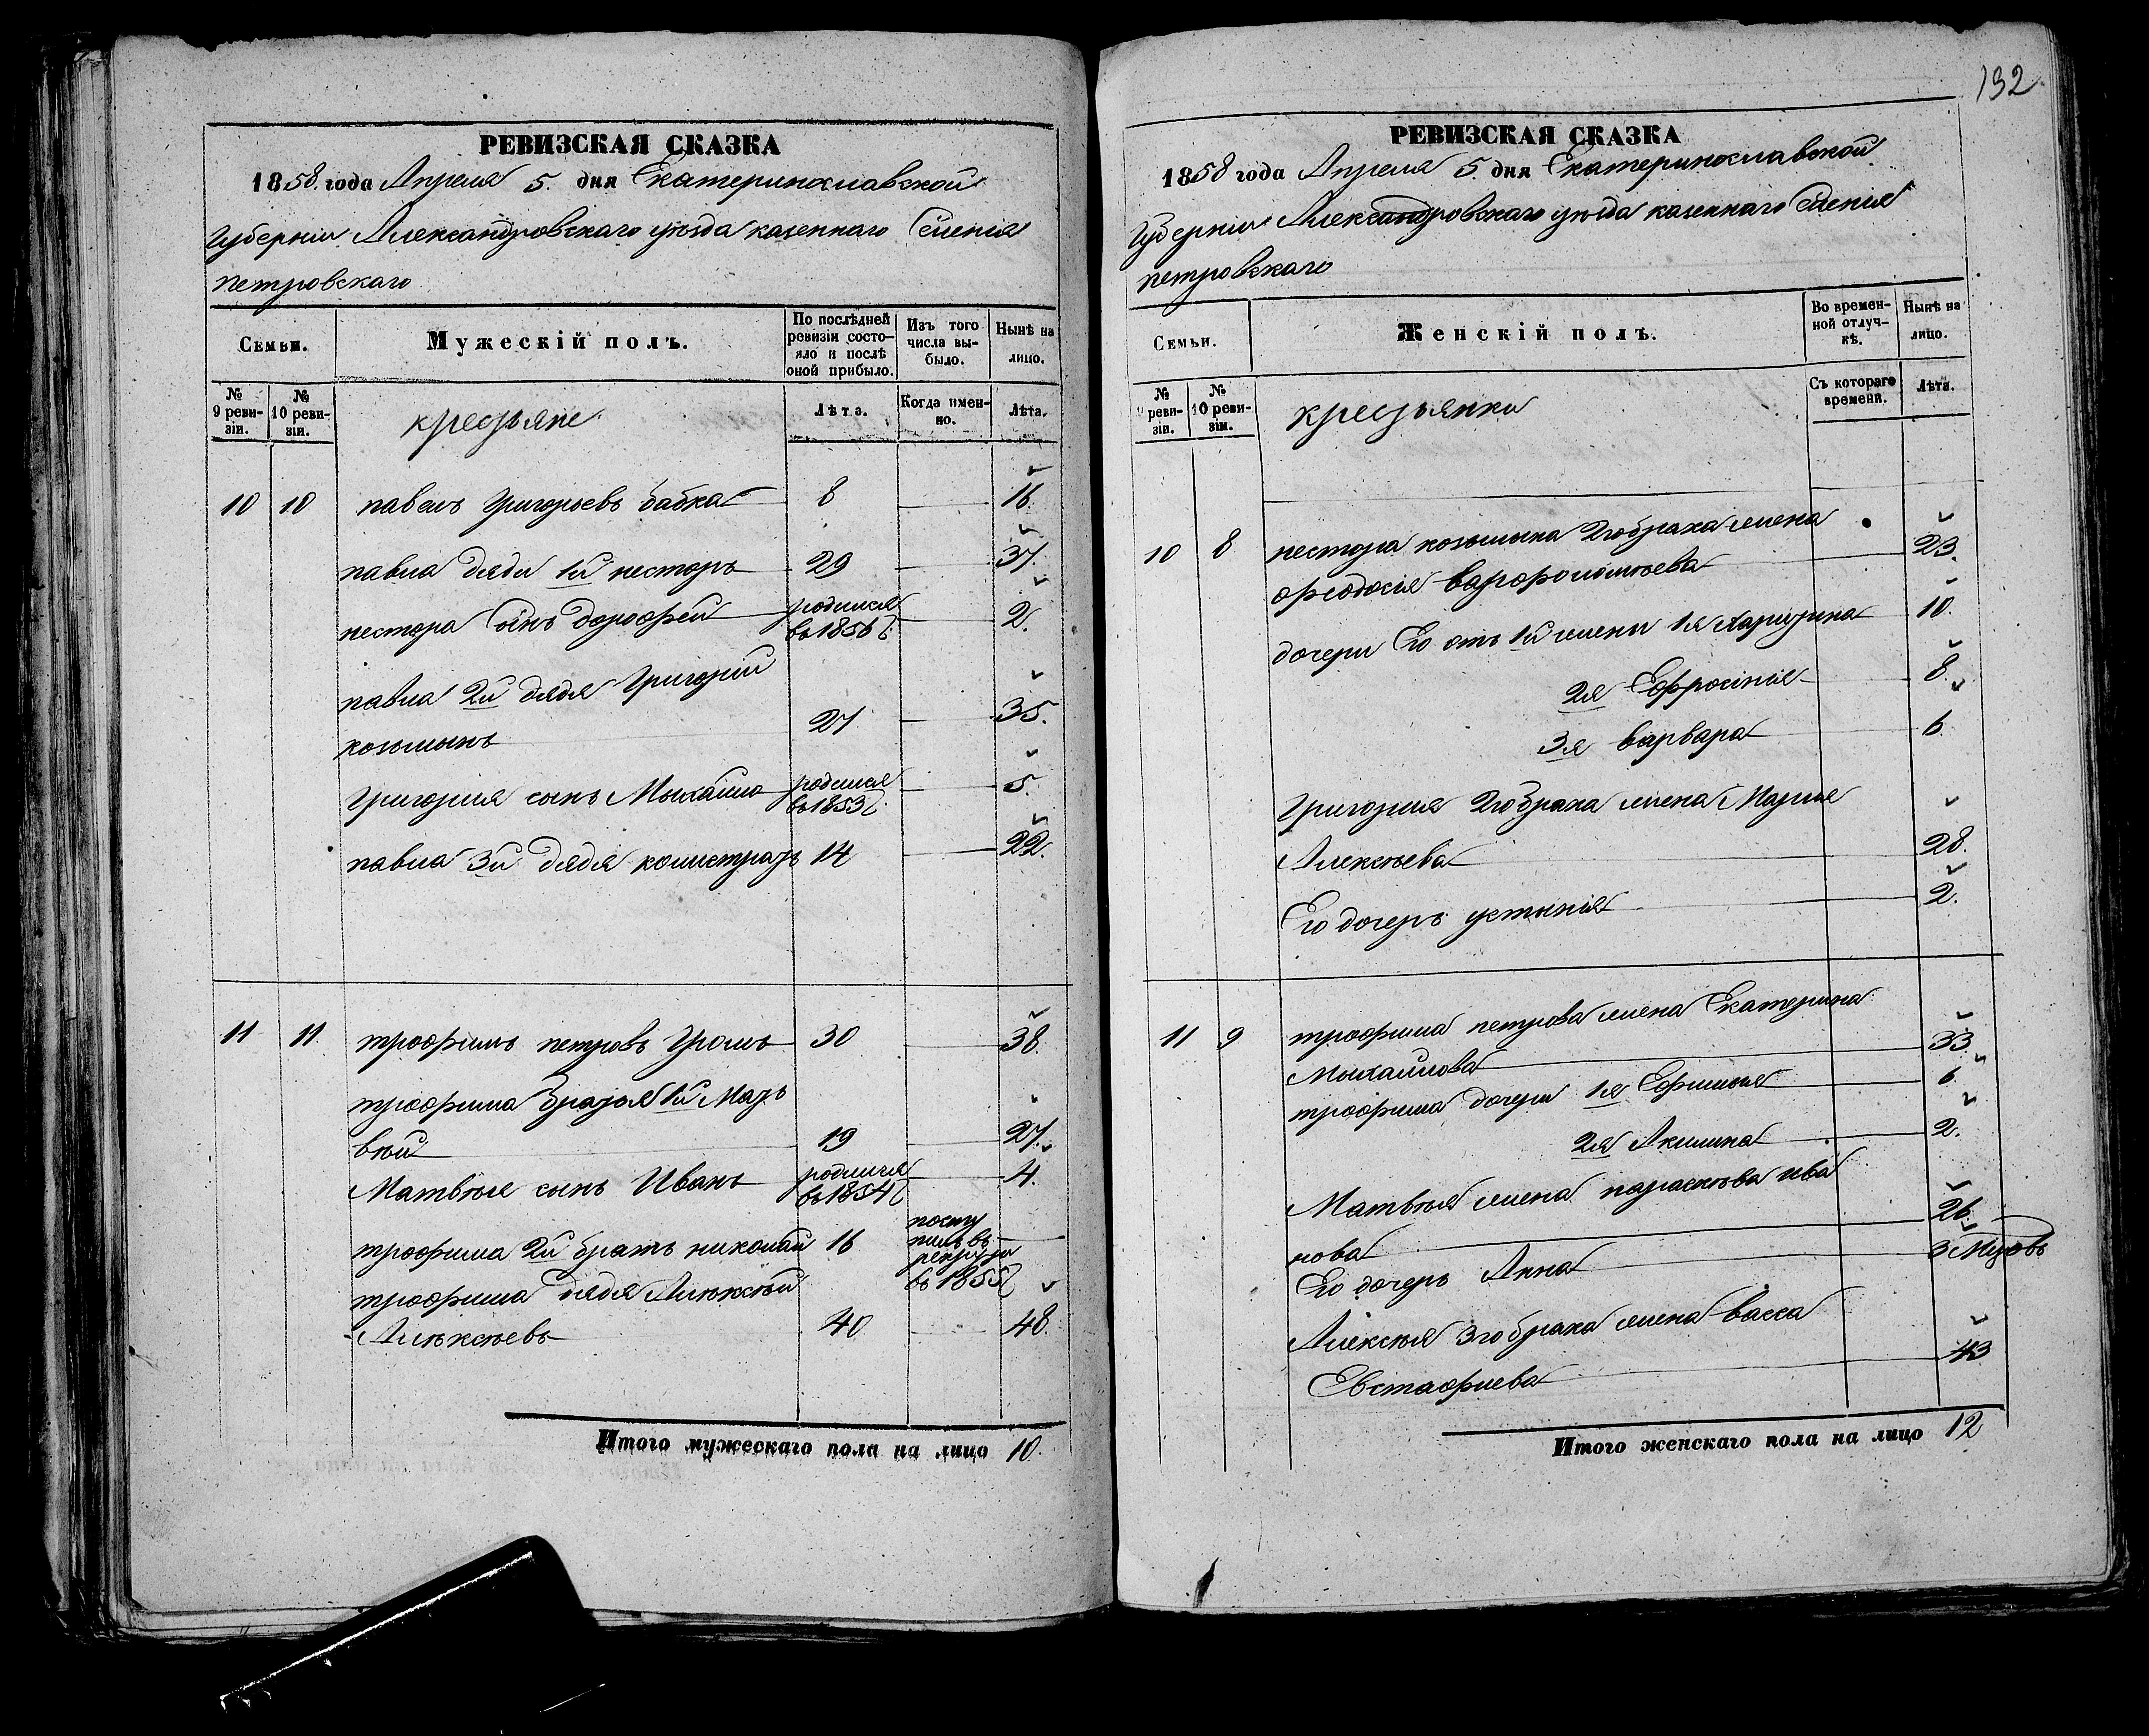 192
РЕВИЗСКАЯ СКАЗКА
1858. года Апреля 5. дня Екатеринославской
Губерніи Александровскаго уезда казеннаго Селенія
петровскаго
Семьи.
Мужескій полъ.
По послѣдней ревизіи состояло и послѣ оной прибыло.
Изъ того числа выбыло.
Нынѣ на лицо.
№ 9 ревизіи.
№ 10 ревизіи.
крестьяне
Лѣта.
Когда именно.
Лѣта.
10 10 павелъ Григорьевъ бабка 8 16.
павла дяди 1й несторъ 29 37.
нестора сынъ дорофей родился въ 1856 г. 2.
павла 2й дядя Григорій
козьминъ 27 35.
Григория сынъ Михайло родился въ 1853 г. 5.
павла 3й дядя 14 22.
11 11. трофимъ петровъ Громъ 30 38.
трофима братья 1й Мат
вѣй 19 27.
Матвѣя сынъ Иванъ родился въ 1854 г 4.
трофима 2й братъ николай 16 посту
пилъ въ
рекруты
въ 1855 г
трофима дядя Алѣксѣй
Алѣксѣевъ 40 48.
Итого мужескаго пола на лицо 10.
РЕВИЗСКАЯ СКАЗКА
1858 года Апреля 5. дня Екатеринославской
Губерніи Александровскаго уезда казеннаго Селенія
петровскаго
Семьи.
Женскій полъ.
Во временной отлучкѣ.
Нынѣ на лицо.
№ 9 ревизіи.
№ 10 ревизіи.
крестьянки
Съ котораго времени.
Лѣта.
10 8 нестора козьмина 2го брака жена
офеодосія варфоломѣева 23.
дочери Его отъ 1й жены 1я Харитина 10.
2я Ефросінія 8.
3я варвара 6.
Григория 2го брака жена Марья
Алексѣева 28.
Его дочерь устинія 2.
11 9 трофима петрова жена Екатерина
Михайлова 33.
трофима дочери 1я Ефимья 6.
2я Акилина 2.
Матвѣя жена параскѣва ива
нова 26.
Его дочерь Анна 3 Мцовъ
Алексѣя 3го брака жена васса
Евстафиева 43
Итого женскаго пола на лицо 12